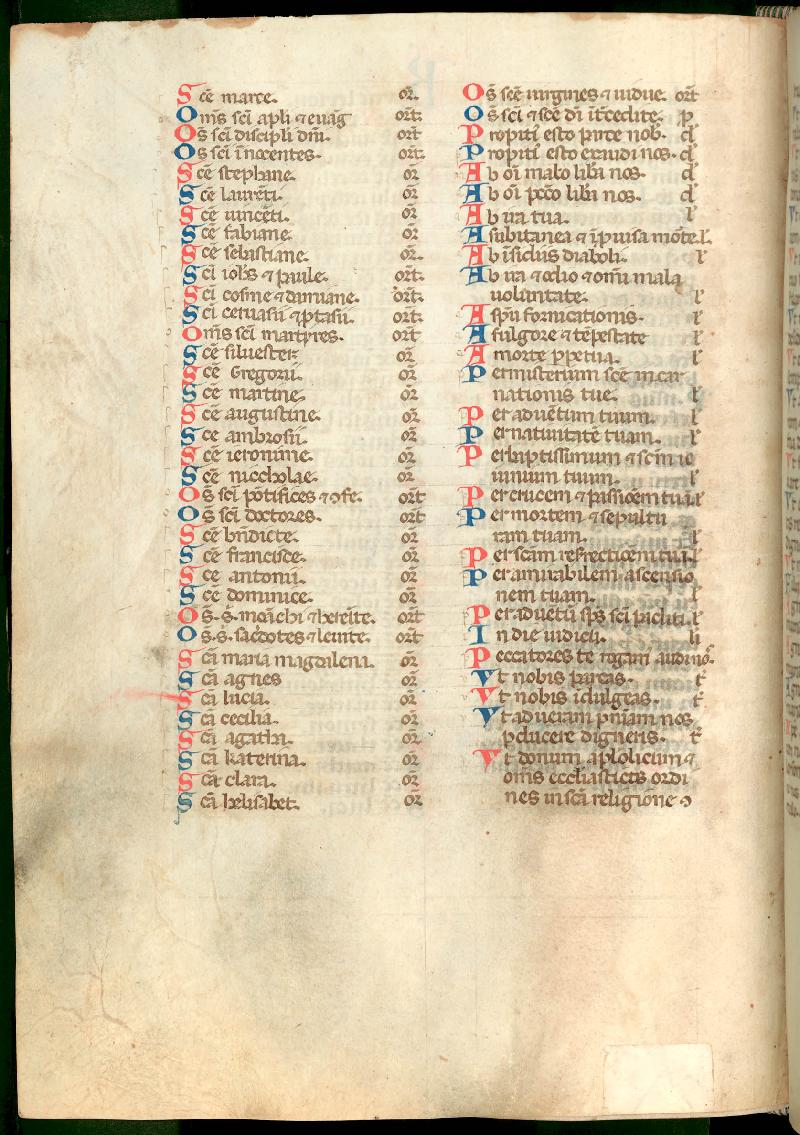 Sce marce. or.
Oms sci apli ⁊ euag ort.
Os sci discipli dni. ort
Os sci inocentes. ort.
Sce stephane. or
Sce laureti. or
Sce uinceti. or
Sce fabiane. or
Sce sebastiane. or.
Sci iohs ⁊ paule. ort.
Sci cosme ⁊ damiane. ort.
Sci ceruasii ⁊ ptasii. ort.
Oms sci martyres. ort
Sce siluester or
Sce Gregorii. or
Sce martine. or
Sce augustine. or
Sce ambrosii. or
Sce ieronime. or
Sce niccholae. or
Os sci potifices ⁊ ɔfe. ort
Os sci doctores. ort
Sce bndicte. or
Sce francisce. or
Sce antonii. or
Sce dominice. or
Os. s. moachi ⁊ hereite. ort
Os. s. sacdotes ⁊ leuite. ort
Sca maria magdalena. or
Sca agnes or
Sca lucia. or
Sca cecilia. or
Sca agatha. or
Sca katerina. or
Sca clara. or
Sca helisabet. or
Os sce uirgines ⁊ uidue. ort
Os sci ⁊ sce di itcedite. p
Propiti esto parce nob. d
Propiti esto exaudi nos. d
Ab oi malo liba nos. d
Ab oi pcco liba nos. d
Ab ira tua. l
A subitanea ⁊ ipuisa morte. l.
Ab isidiis diaboli. l
Ab ira ⁊ odio ⁊ omi mala
uoluntate. l
A spu fornicationis. l
A fulgore ⁊ tepestate l
A morte ppetua. l
Per misterium sce incar
nationis tue. l
Per aduetum tuum. l
Per natiuitate tuam. l
Per baptissimum ⁊ scm ie
iunium tuum. l
Per crucem ⁊ passioem tua. l
Per mortem ⁊ sepultu
ram tuam. l
Per scam resrectioem tua. l
Per amirabilem ascensio
nem tuam. l
Per aduetu sps sci pacliti. l
In die iudicii. li
Peccatores te rogam audi nos.
Vt nobis parcas. t
Vt nobis idulgeas. t
Vt ad ueram pniam nos
pducere digneris. t
Vt donum aplolicum ⁊
omis eccliasticos ordi
nes in sca religione ɔ